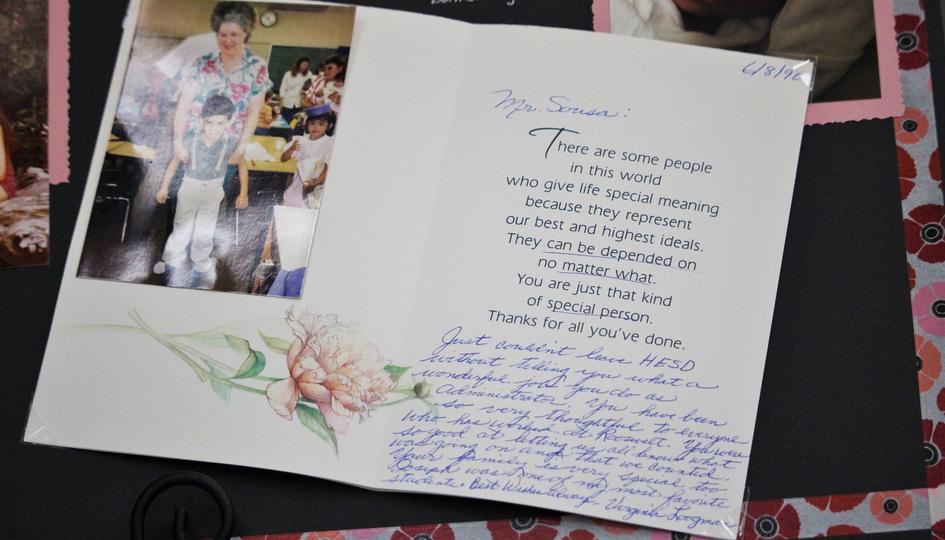 6/8/90
Mr. Sousa:
There are some people
in this world
who give life special meaning
because they represent
our best and highest ideals.
They can be depended on
no matter what.
You are just that kind
of special person.
Thanks for all you've done.
Just couldn't leave HESD
without telling you what a
wonderful job you do as
Administrator. You have been
so very thoughtful to everyone
who has worked at Roosevelt. You were
so good at letting us all know what
was going on and that we counted.
Your family is very special too
Joseph was one of my most favorite
students. Best Wishes Always, Virginia